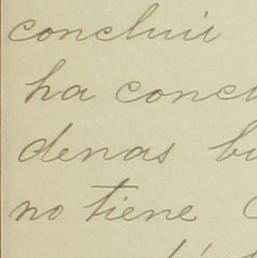 concluir
ha concl
denas bu
no tiene